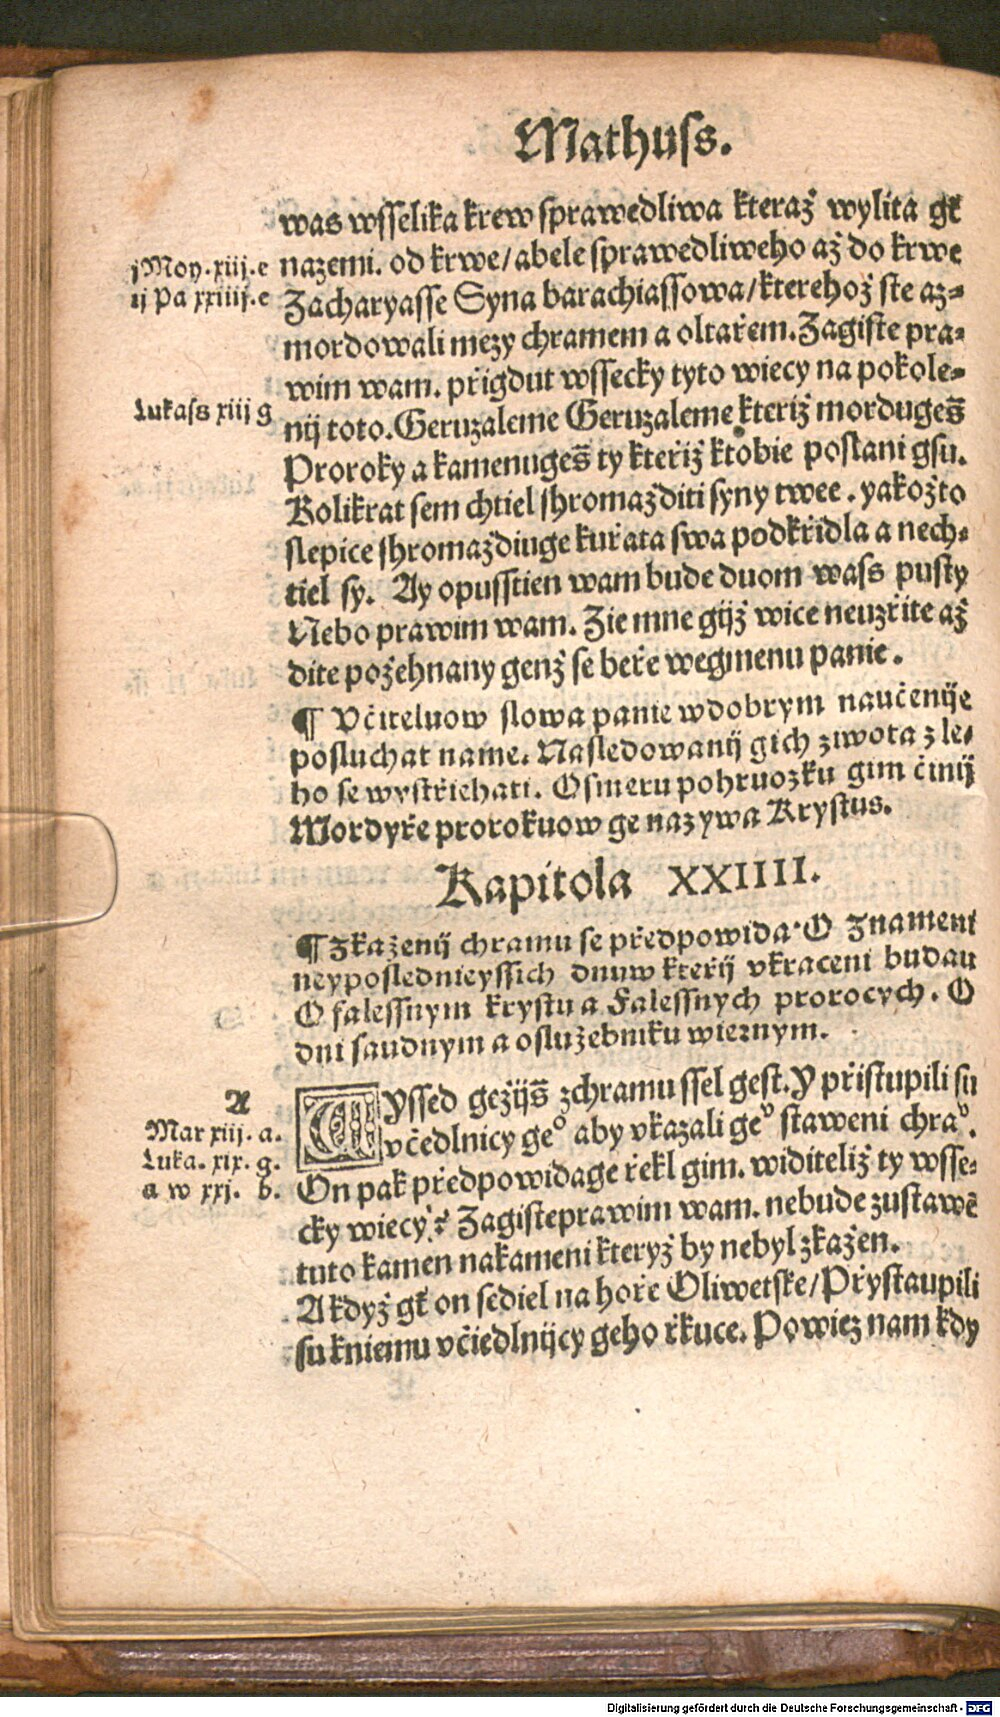 Mathuss.
was wsselika krew sprawedliwa kteraž wylita gt̃
nazemi. od krwe/abele sprawedliweho až do krwe
Zacharyasse Syna barachiassowa/kterehož ste az=
mordowali mezy chramem a oltařem. Zagiste pra=
wim wam. přigdut wssecky tyto wiecy na pokole=
nij toto. Geruzaleme Geruzaleme kteriž mordugeš̃
Proroky a kamenugeš̃ ty kteřiž ktobie poslani gsu.
Kolikrat sem chtiel shromažditi syny twee. yakožto
slepice shromaždiuge kuřata swa podkřidla a nech=
tiel sy. Ay opusstien wam bude duom wass pusty
Nebo prawim wam. Zie mne gijž wice neuzřite až
dite požehnany genž se beře wegmenu panie.
¶ Včiteluow slowa panie wdobrym naučenije
posluchat name. Nasledowanij gich ziwota z le=
ho se wystřiehati. Osmeru pohruozku gim činij
Mordyře prorokuow ge nazywa Krystus.
Kapitola XXIIII.
¶ Zkaženij chramu se předpowida. O Znament
neyposlednieyssich dnuw kteřij vkraceni budau
O falessnym krystu a Falessnych prorocych. O
dni saudnym a oslužebniku wiernym.
WYssed gežijš̃ zchramu ssel gest. Y přistupili su
včedlnicy geº aby vkazali geᵛ staweni chraᵛ.
On pak předpowidage řekl gim. widiteliž ty wsse=
cky wiecy? Zagisteprawim wam. nebude zustawẽ
tuto kamen nakameni kteryž by nebyl zkažen.
A když gt̃ on sediel na hoře Oliwetske/Přystaupili
su kniemu včiedlnijcy geho řkuce. Powiez nam kdy
j Moy. xiij. e
ij Pa xxiiij. e
Lukass xiij g
A
Mar xiij. a.
Luka. xix. g.
a w xxj. b.
Digitalisierung gefördert durch die Deutsche Forschungsgemeinschaft - DFG